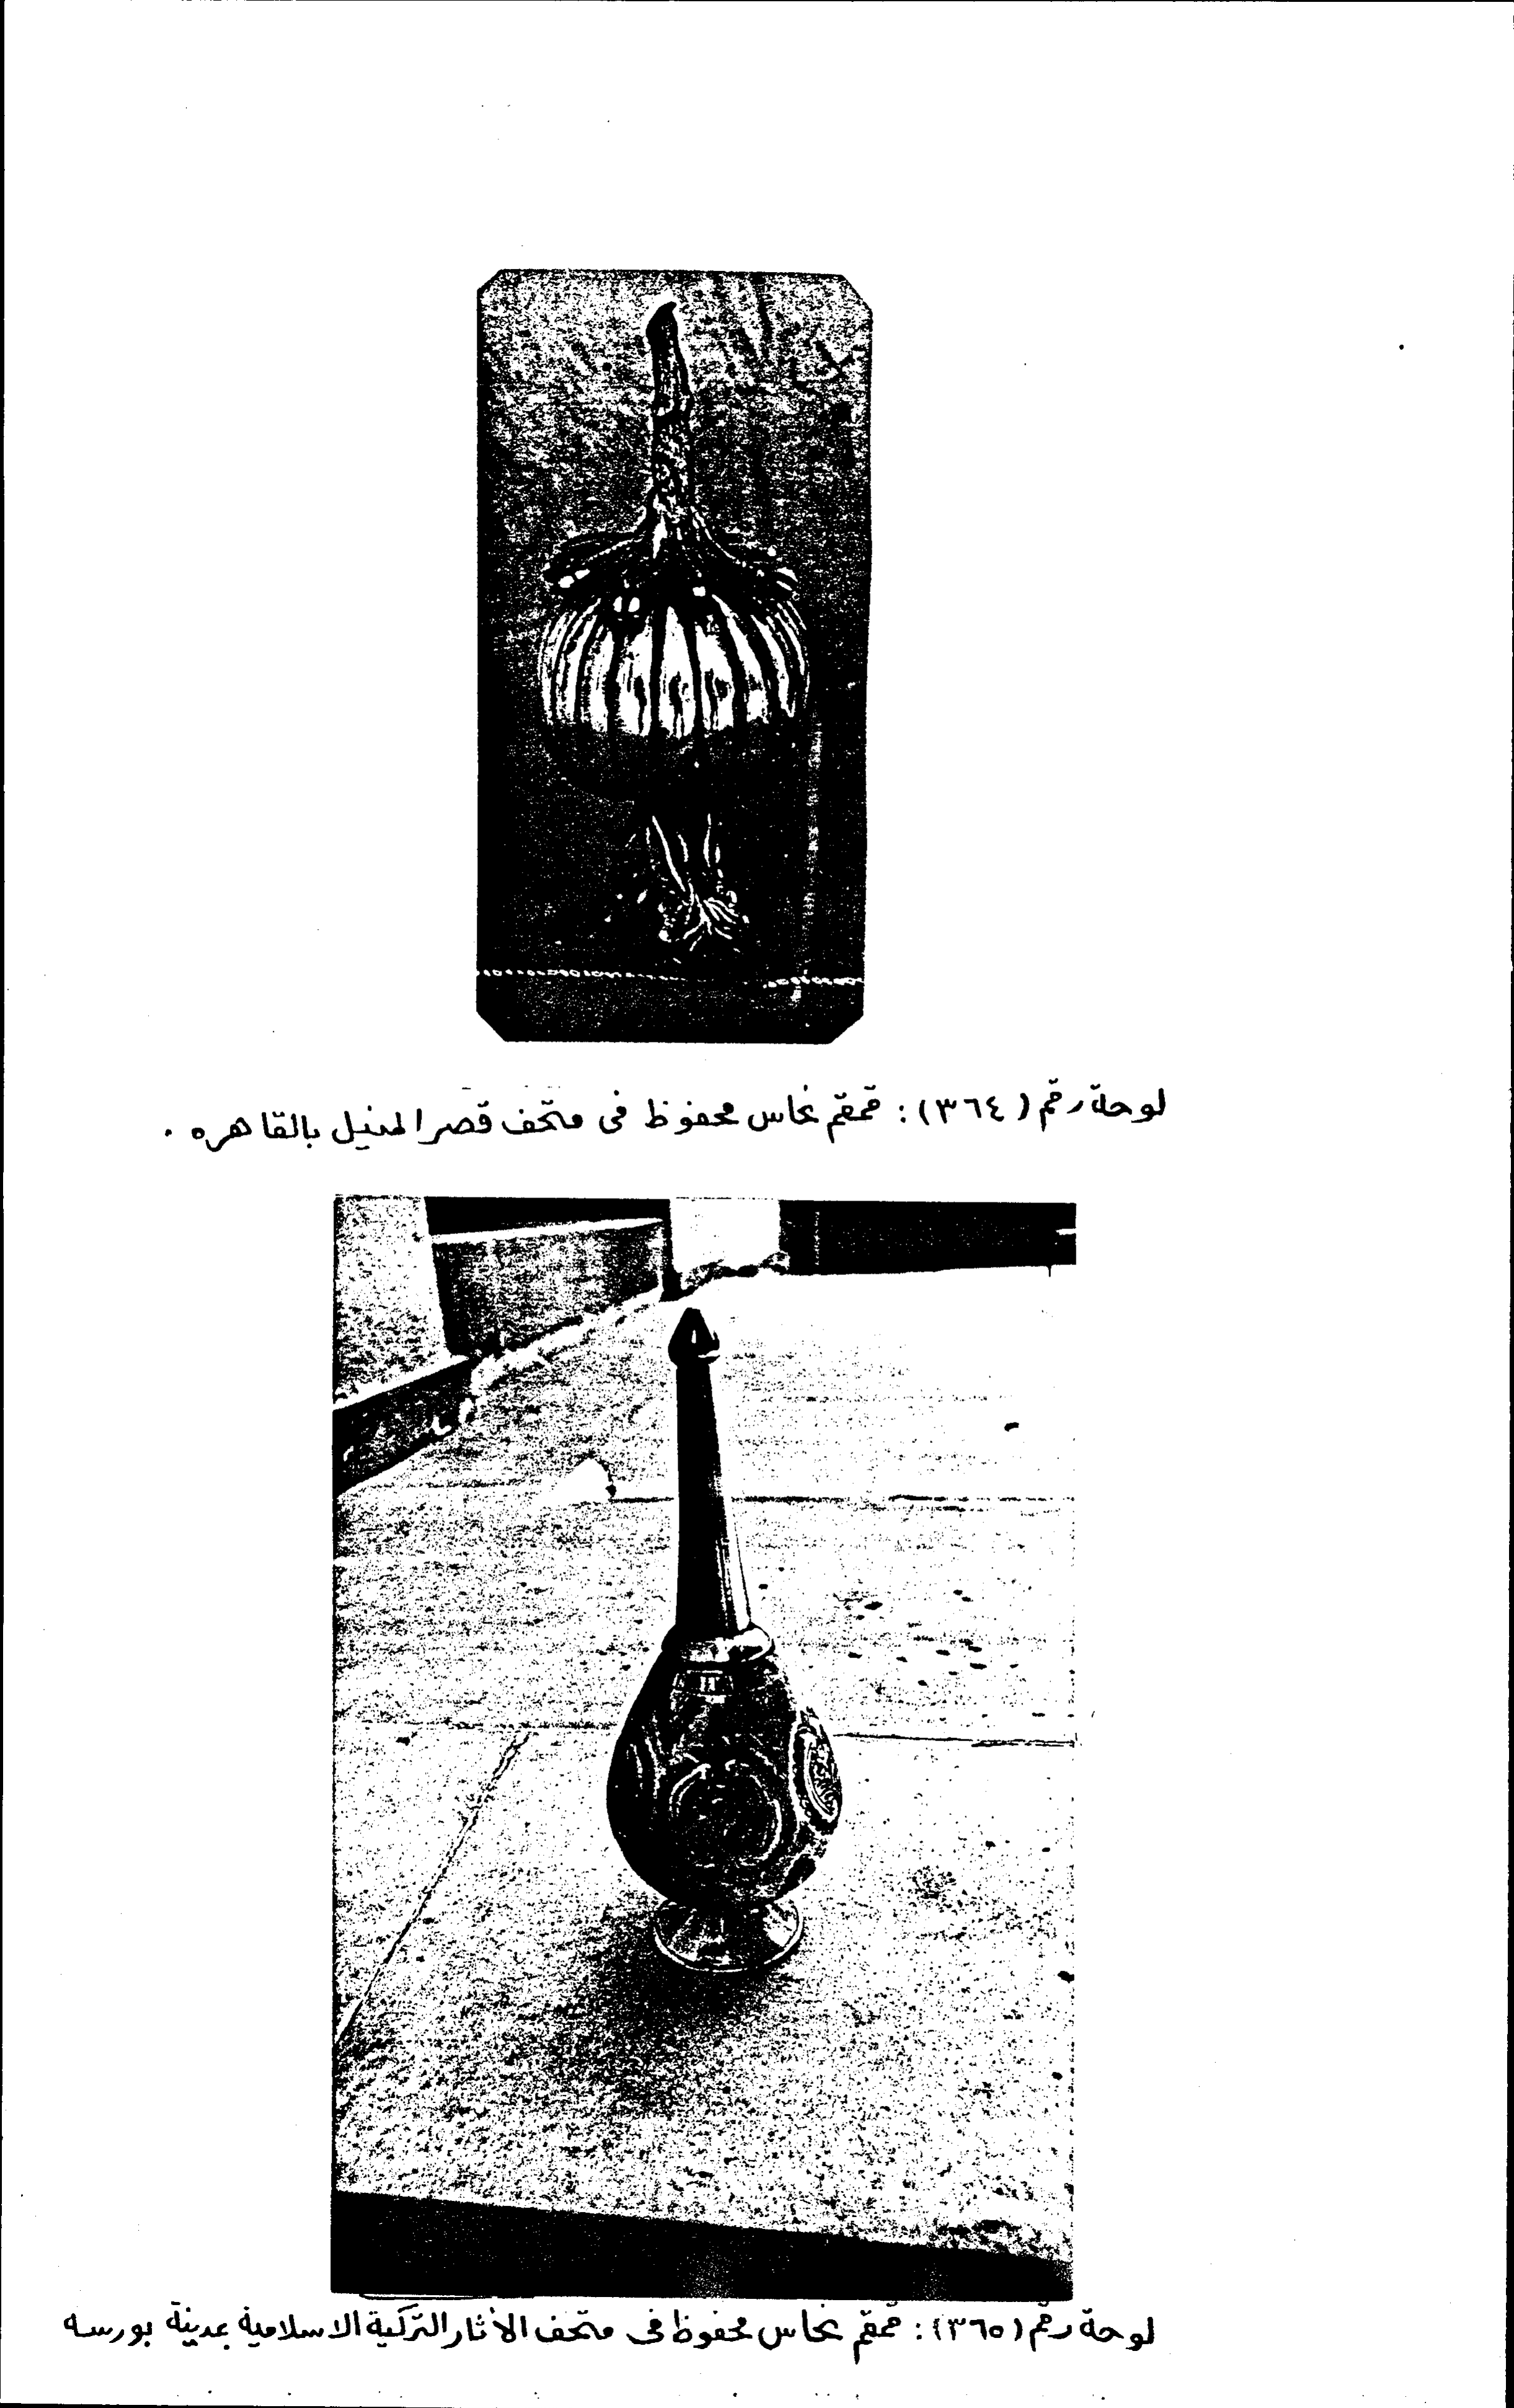 لوحة رقم (٣٦٤) : قمقم نحاس محفوظ فى متحف قصر المنيل بالقاهره .
لوحة رقم (٣٦٥) : قمقم نحاس محفوظ فى متحف الأثار التركية الاسلامية بمدينة بورسه